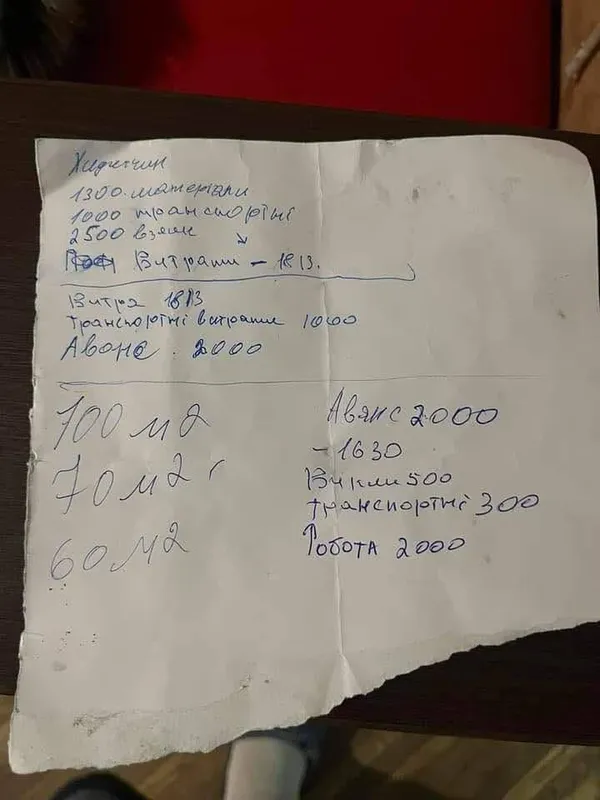 1300 матеріали
1000 транспортні
2500 взяли
Витрати - 1813.
Витра 1813
транспортні витрати 1000
Аванс. 2000
100 м2
70 м2
60 м2
Авянс 2000
- 1630
500
транспортні 300
Робота 2000